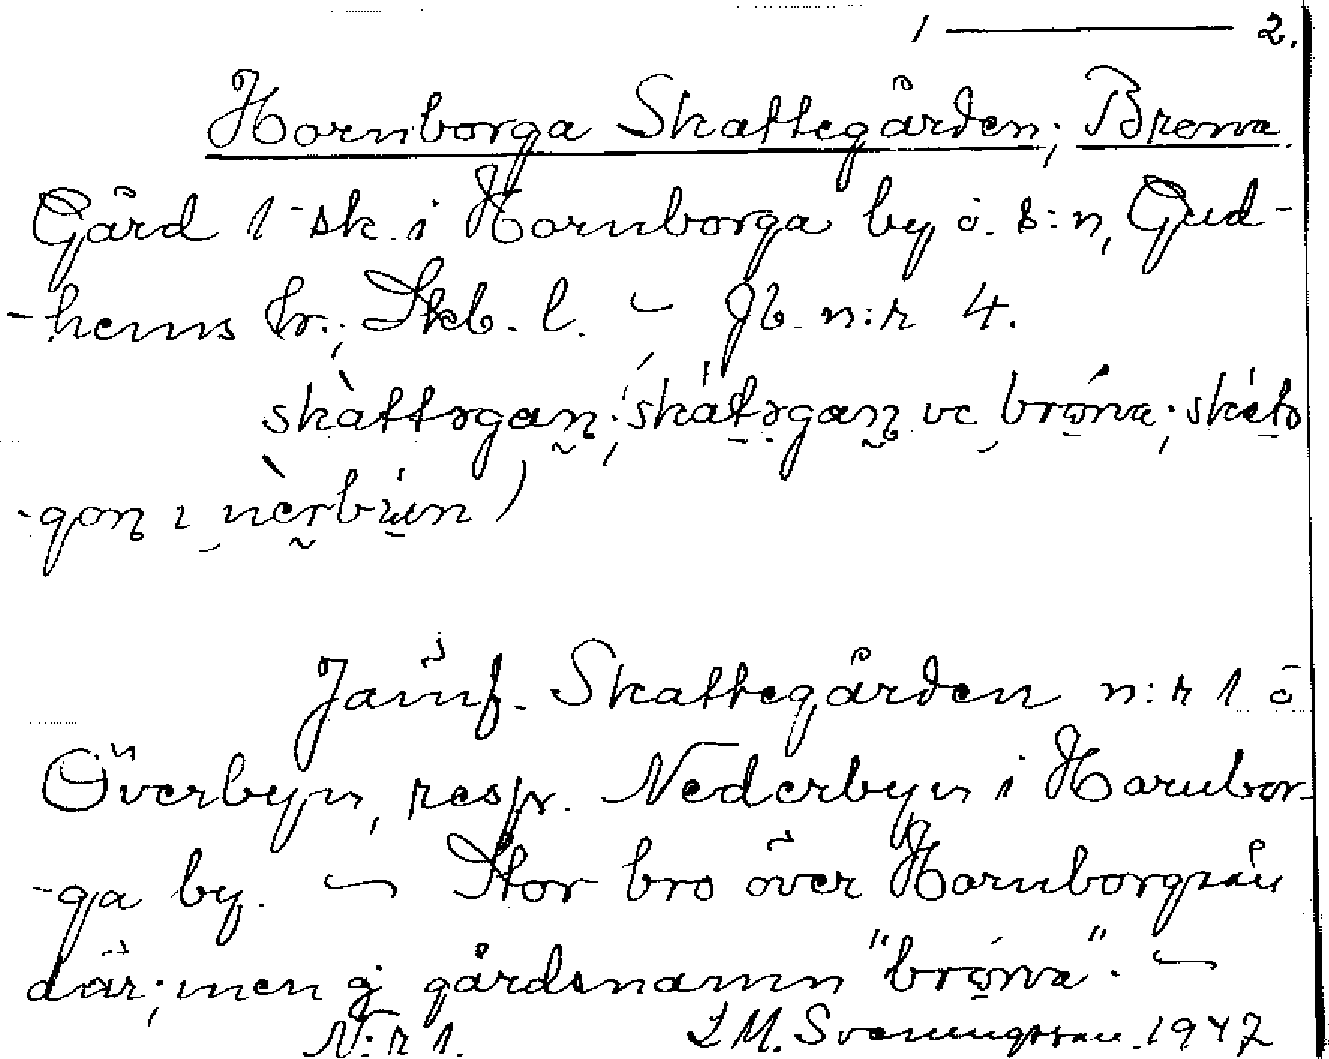 1 — 2.
Hornborga Skattegården; Brona.
Gård 1 sk. i Hornborga by o. s:n, Gud-
-hems hr.; Skb. l. — Jb. n:r 4.
skàttəgaɳ; (skátəgaɳ ve bróna; skátə
-gaɳ ı nèrbýn)
Jämf. Skattegården n:r 1 o
Överbyn, resp. Nederbyn i Hornbor-
-ga by. — Stor bro över Hornborgaån
där; men ej gårdsnamn "bróna". —
N:r 1. L M. Svenungsson. 1947